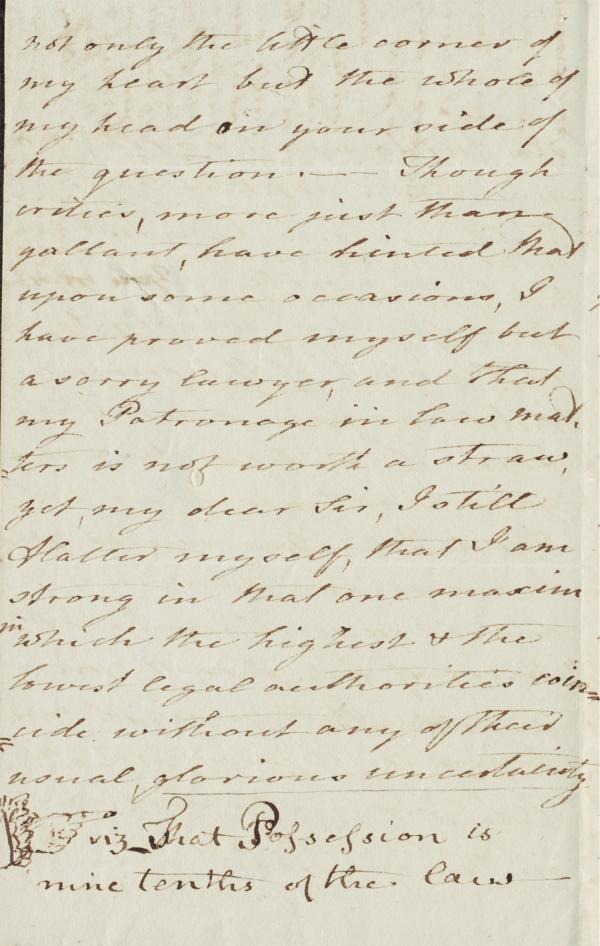 not only the little corner of
my heart but the whole of
my head on your side of
the question. — Though
critics, more just than
gallant, have hinted that
upon some occasions, I
have proved myself but
a sorry lawyer, and that
my Patronage in law mat-
ters is not worth a straw,
yet, my dear Sir, I still
flatter myself, that I am
strong in that one maxim
in which the highest & the
lowest legal authorities coin=
=cide without any of their
usual glorious uncertainty
viz That Possession is
nine tenths of the law —